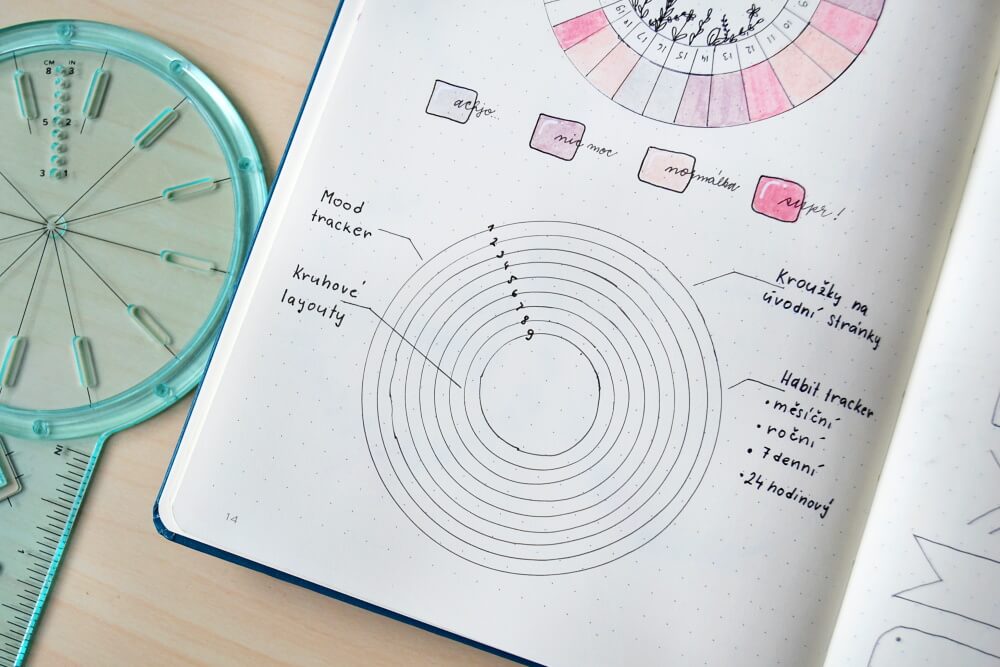 19 18 17 16 15 14 13 12 11 10 9
achjo..
nic moc
normálka
supr!
CM IN
8 3
5 2
3 1
Mood
tracker
Kruhové
layouty
1
2
3
4
5
6
7
8
9
Kroužky na
úvodní stránky
Habit tracker
• měsíční
• roční
• 7denní
• 24hodinový
14
IN
1